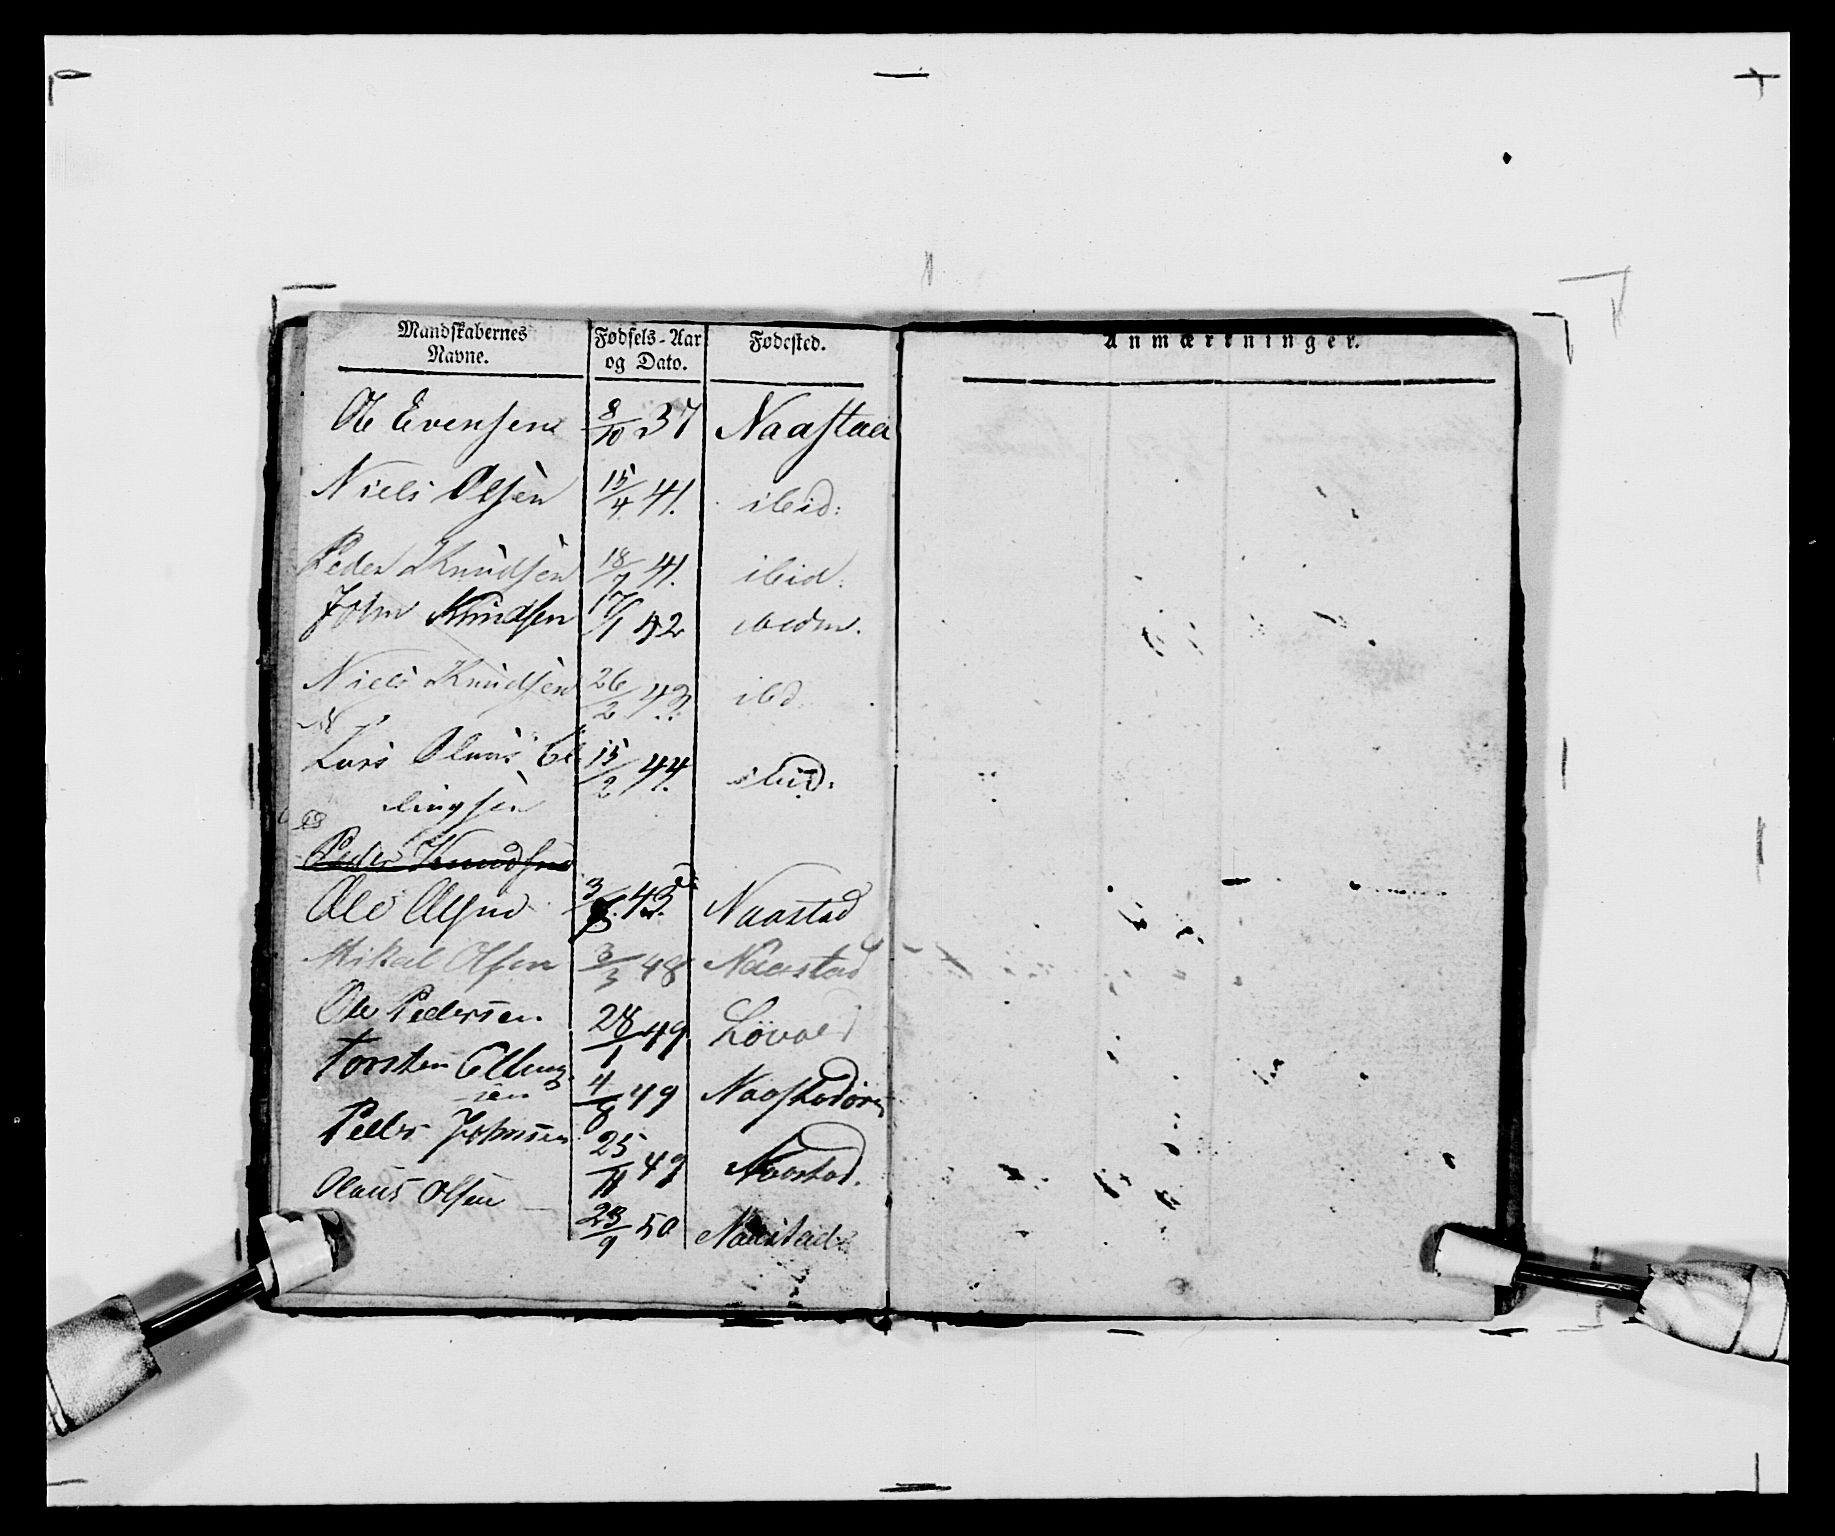 Mandskabernes Navne. Fødsels-Aar og Dato. Fødested. Anmærkninger.
Ole Evensen 8/10 37 Naastad
Niels Olsen 15/4 41. ibid:
Peder Knudsen 18/7 41. ibid:
John Knudsen 17/1 42 ibidm.
Niels Knudsen 26/2 43. ibd
Lars Olaus El 15/2 44. ibid:
lingsen
Peder Knudsen
Ole Olsen 3/8. 45. Naastad
Mikal Olsen 3/3 48 Naastad
Ole Pedersen. 28/1 49 Løvold
Torsten Elling 4/6 49
sen
Peder Johnsen 25/11 49 Naastad.
Olaus Olsen 23/9 50 Naastad